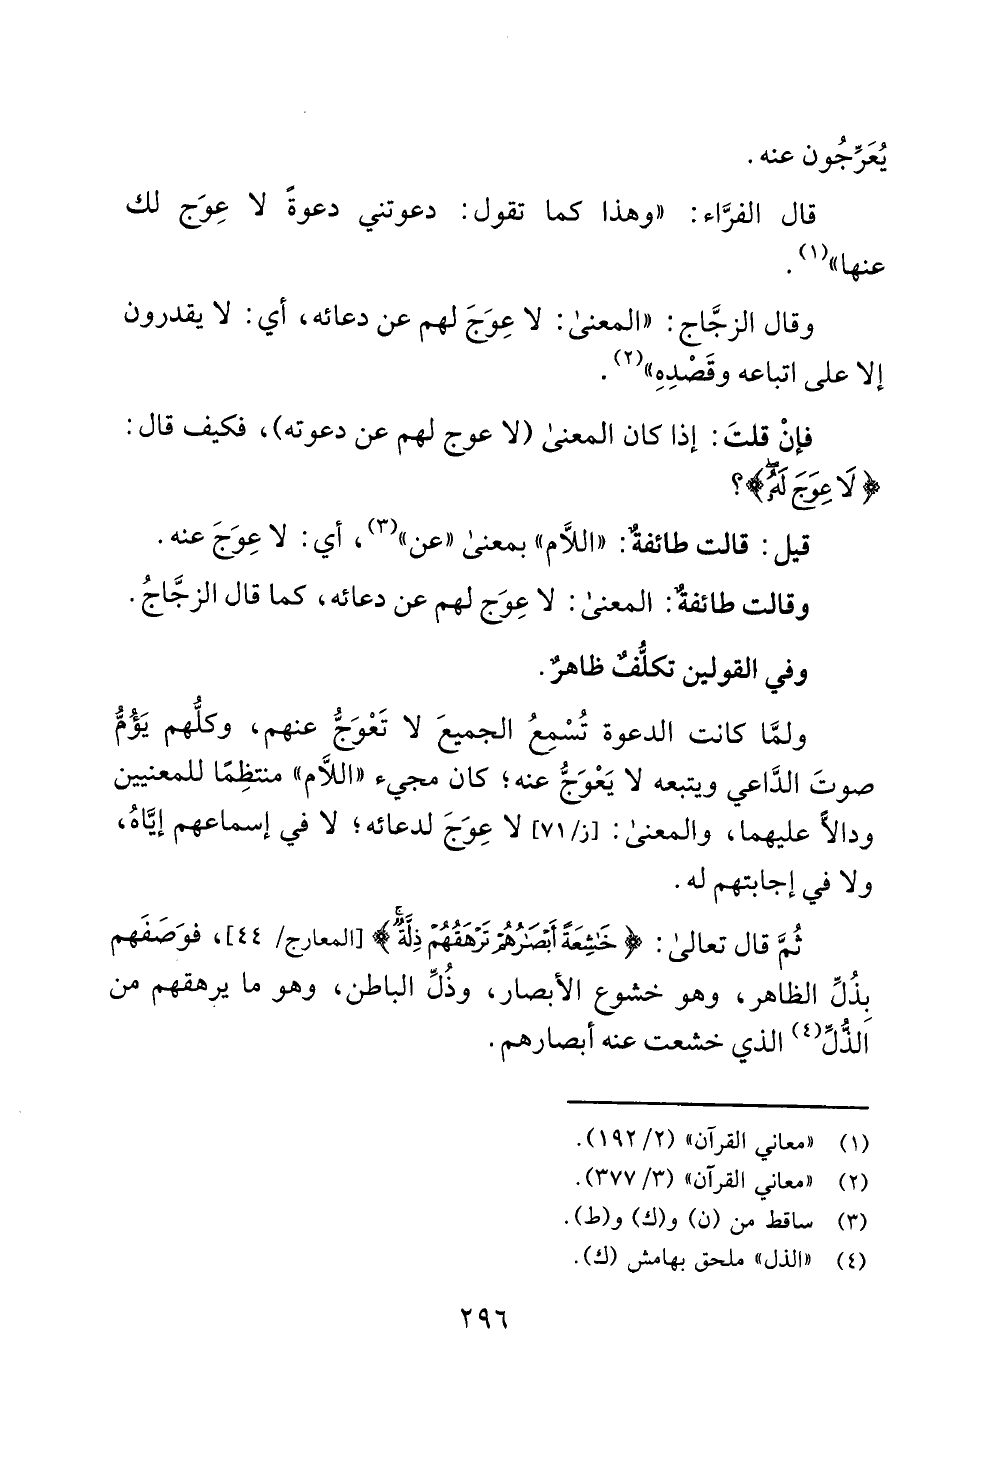 يُعَرِّجُون عنه.
قال الفرَّاء: «وهذا كما تقول: دعوتني دعوةً لا عِوَج لك
عنها»(١).
وقال الزجَّاج: «المعنىٰ: لا عِوَجَ لهم عن دعائه، أي: لا يقدرون
إلا على اتباعه وقَصْدِهِ»(٢).
فإنْ قلتَ: إذا كان المعنىٰ (لا عوج لهم عن دعوته)، فكيف قال:
﴿لَا عِوَجَ لَهُۥۖ﴾؟
قيل: قالت طائفةٌ: «اللاَّم» بمعنىٰ «عن»(٣)، أي: لا عِوَجَ عنه.
وقالت طائفةٌ: المعنىٰ: لا عِوَج لهم عن دعائه، كما قال الزجَّاجُ.
وفي القولين تكلُّفٌ ظاهرٌ.
ولمَّا كانت الدعوة تُسْمِعُ الجميعَ لا تَعْوَجُّ عنهم، وكلُّهم يَؤُمُّ
صوتَ الدَّاعي ويتبعه لا يَعْوَجُّ عنه؛ كان مجيء «اللاَّم» منتظِمًا للمعنيين
ودالاً عليهما، والمعنىٰ: [ز/٧١] لا عِوَجَ لدعائه؛ لا في إسماعهم إيَّاهُ،
ولا في إجابتهم له.
ثُمَّ قال تعالىٰ: ﴿خَٰشِعَةً أَبْصَٰرُهُمْ تَرْهَقُهُمْ ذِلَّةٌۚ﴾ [المعارج/ ٤٤]، فوَصَفَهم
بِذُلِّ الظاهر، وهو خشوع الأبصار، وذُلِّ الباطن، وهو ما يرهقهم من
الذُّلِّ(٤) الذي خشعت عنه أبصارهم.
(١) «معاني القرآن» (٢/ ١٩٢).
(٢) «معاني القرآن» (٣/ ٣٧٧).
(٣) ساقط من (ن) و(ك) و(ط).
(٤) «الذل» ملحق بهامش (ك).
٢٩٦